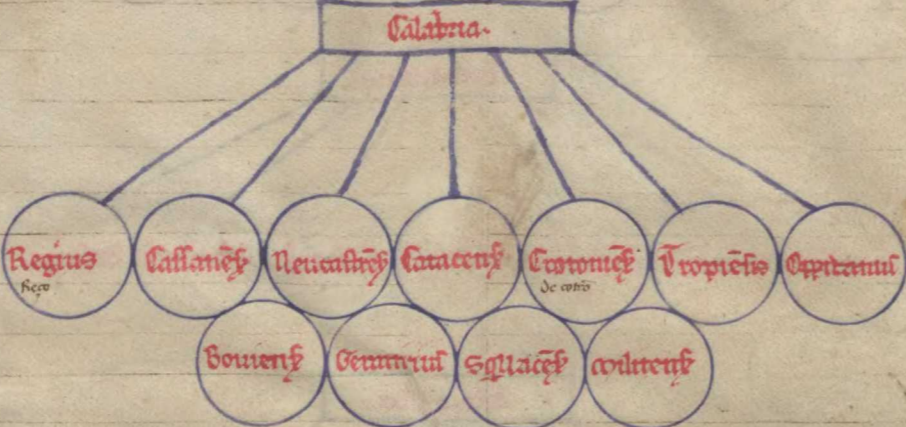 Calabria.
Regius
Reço
Cassanēs
Neucastrēs
Catacens
Cotronieēs
de cotrō
Tropiēsis
Oppitanus
Bouiens
Geruntinus
Sqllacēs
Militens